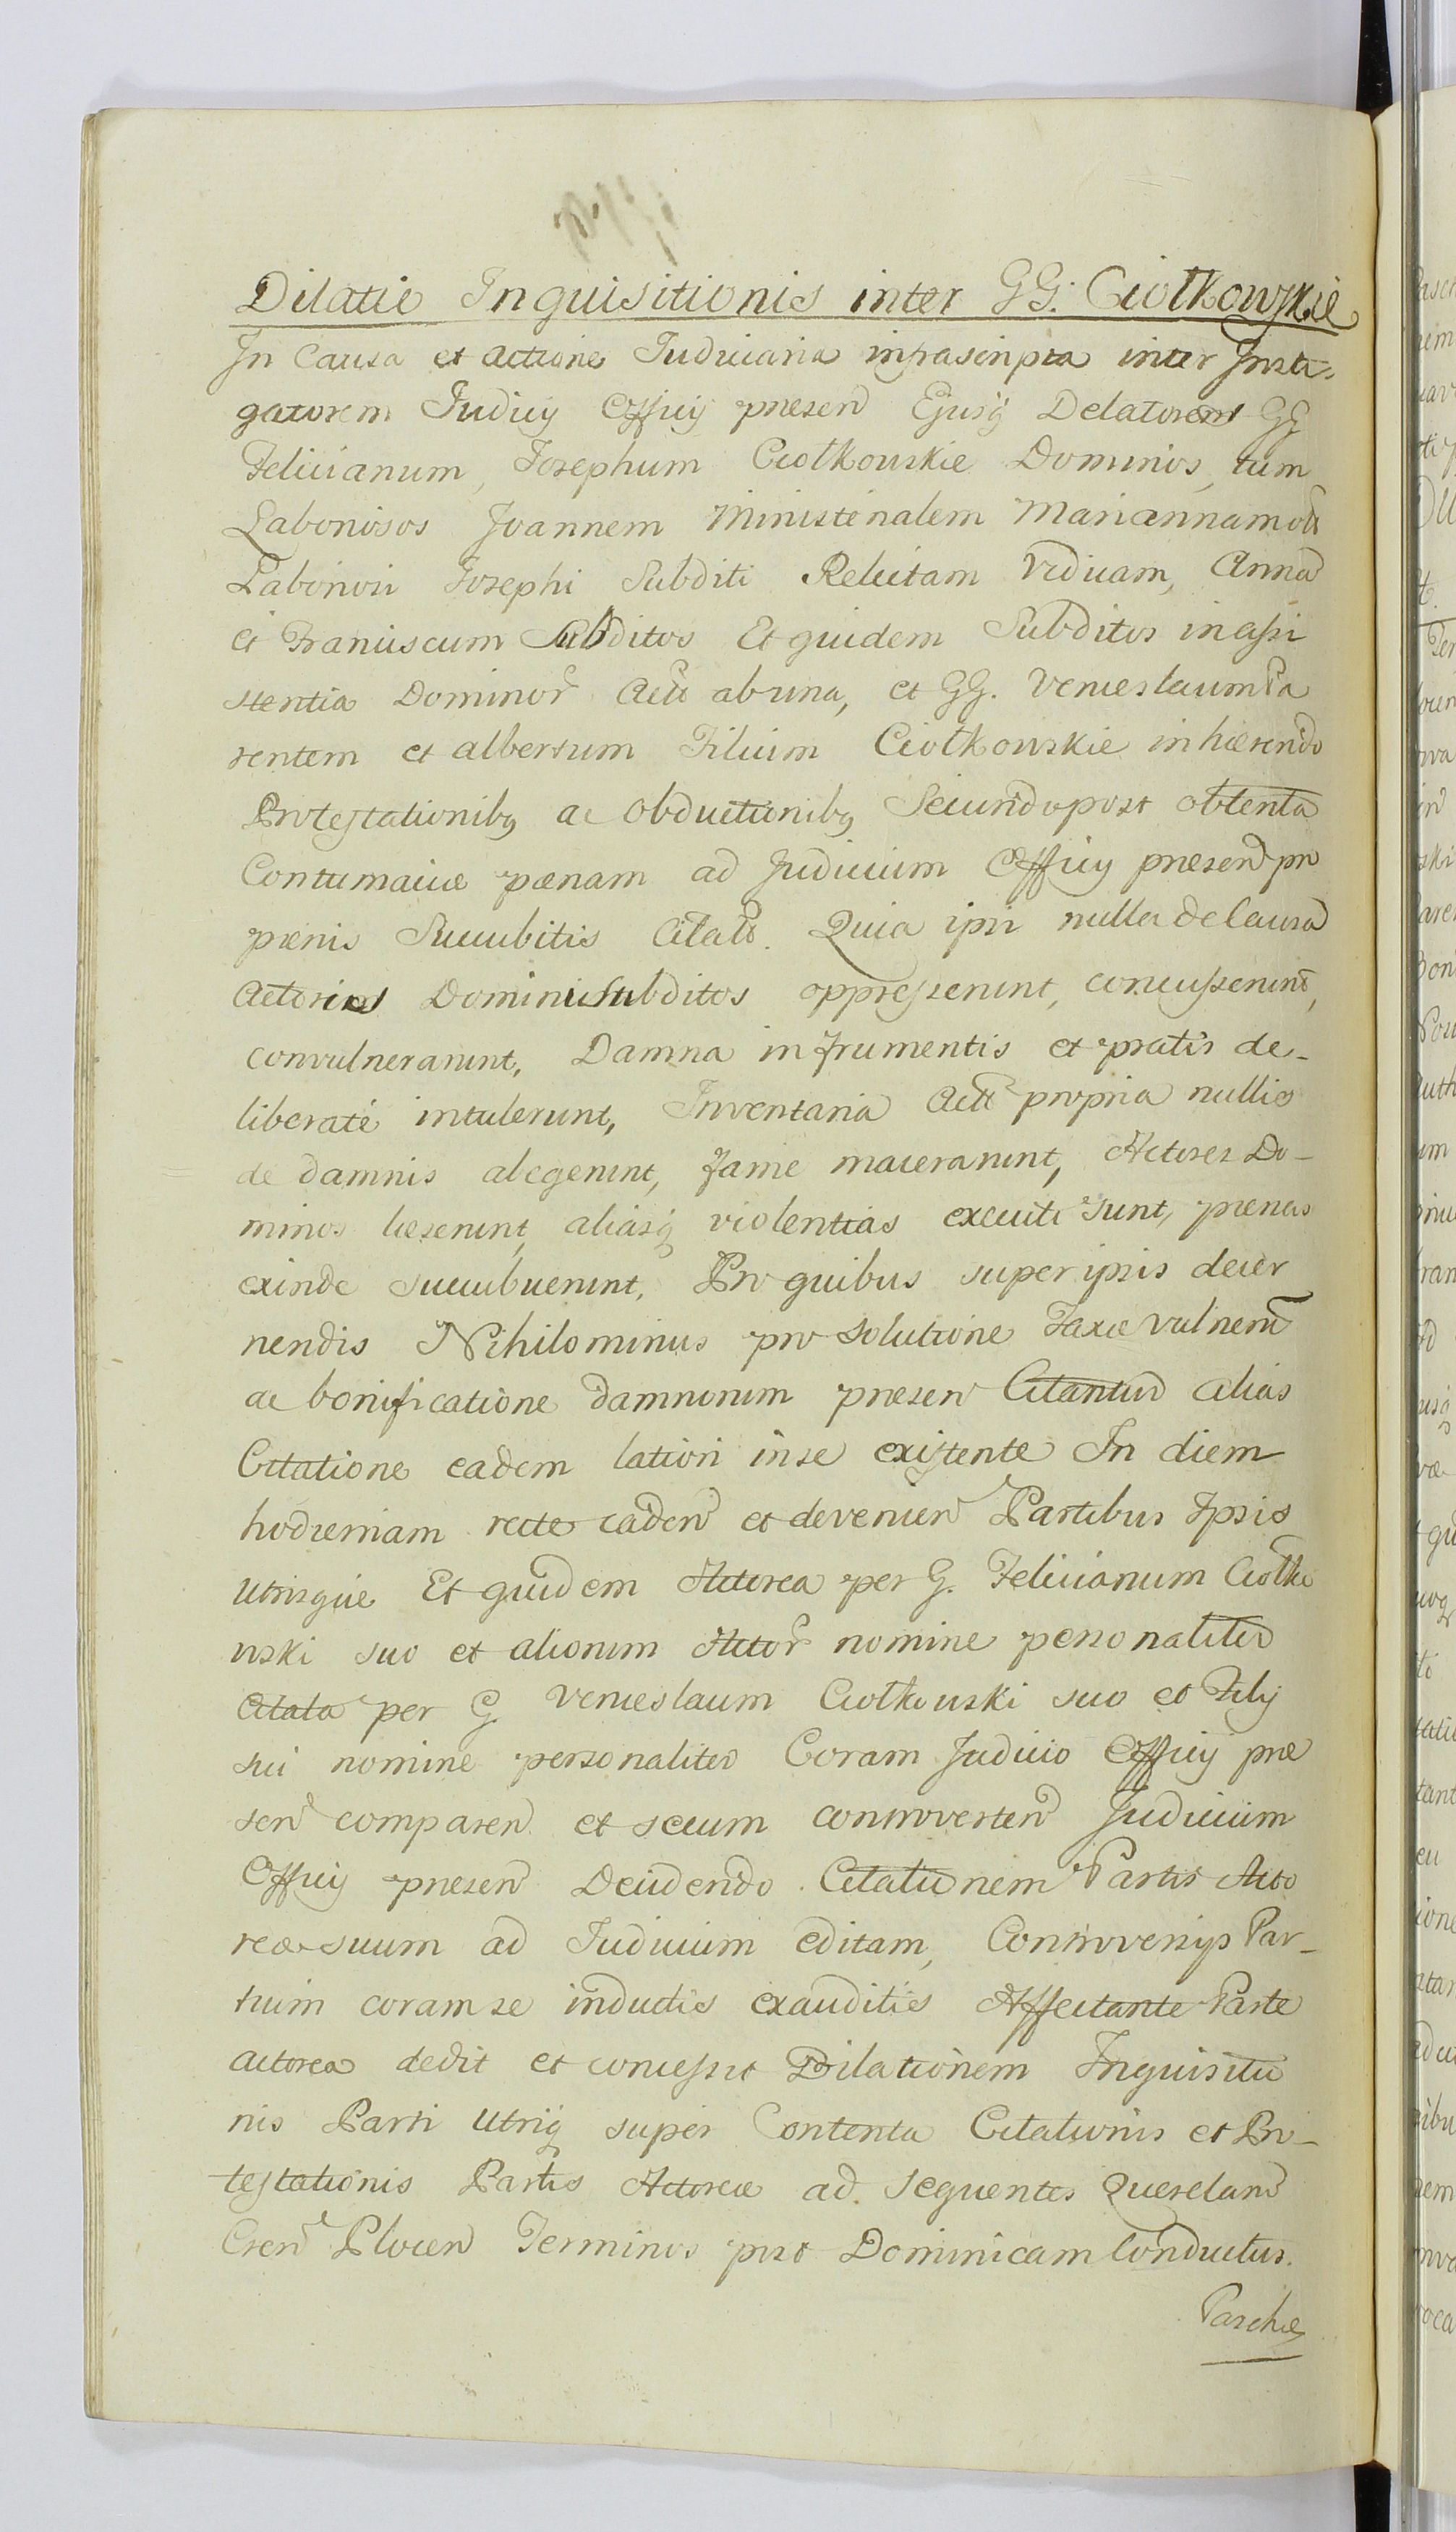 Dilatio Inquisitionis inter GG. Ciołkowskie
In Causa et actione Judiciaria infrascripta inter Insti-
gatorem Judicij Officij presen Ejusq Delatorem GG
Felicianum, Josephum Ciołkowskie Dominos, tum
Laboriosos Joannem Ministerialem Mariannam olt
Laboriosi Josephi Subditi Relictam Viduam, Anna
et Franciscum Subditos Et quidem Subditos in assi
stentia Dominor Act ab una, et GG. Venceslaum Pa
rentem et albertum Filium Ciołkowskie inhærendo
Protestationibq ac obductionibq Secundo post obtenta
Contumaciæ pænam ad Judicium Officij præsen pro
pænis Succubitis Citato. Quia ipsi nulla de causa
actorios Domini Subditos oppresserunt, concusserunt,
convulnerarunt, Damna in frumentis et pratis de-
liberaté intulerunt, Inventaria Act propria nullis
de damnis abegerunt, fame macerarunt, Actores Do-
minos læserunt, aliasq violentias executi sunt, pænas
exinde succubuerunt, Pro quibus super ipsis decer
nendis Nihilominus pro solutione Taxæ vulnerũ
ac bonificatione damnorum presen Citantur alias
Citatione eadem latiori in se existente In diem
hodiernam recte caden et devenien Partibus Ipsis
utrisque Et quidem Actorea per G. Felicianum Ciołko
wski suo et aliorum Actor nomine personaliter
Citata per G Venceslaum Ciołkowski suo et Filij
sui nomine personaliter Coram Judicio Officij præ
sen comparen et secum controverten Judicium
Officij presen Decidendo Citationem Partis Acto
reæ suum ad Judicium editam, Controversijs Par-
tium coram se inductis exauditis Affectante Parte
actorea dedit et concessit Dilationem Inquisitio
nis Parti utriq super Contenta Citationis et Pro-
testationis Partis Actoreæ ad sequentes Querelarũ
Cren Plocen Terminos post Dominicam Conductus.
Paschæ